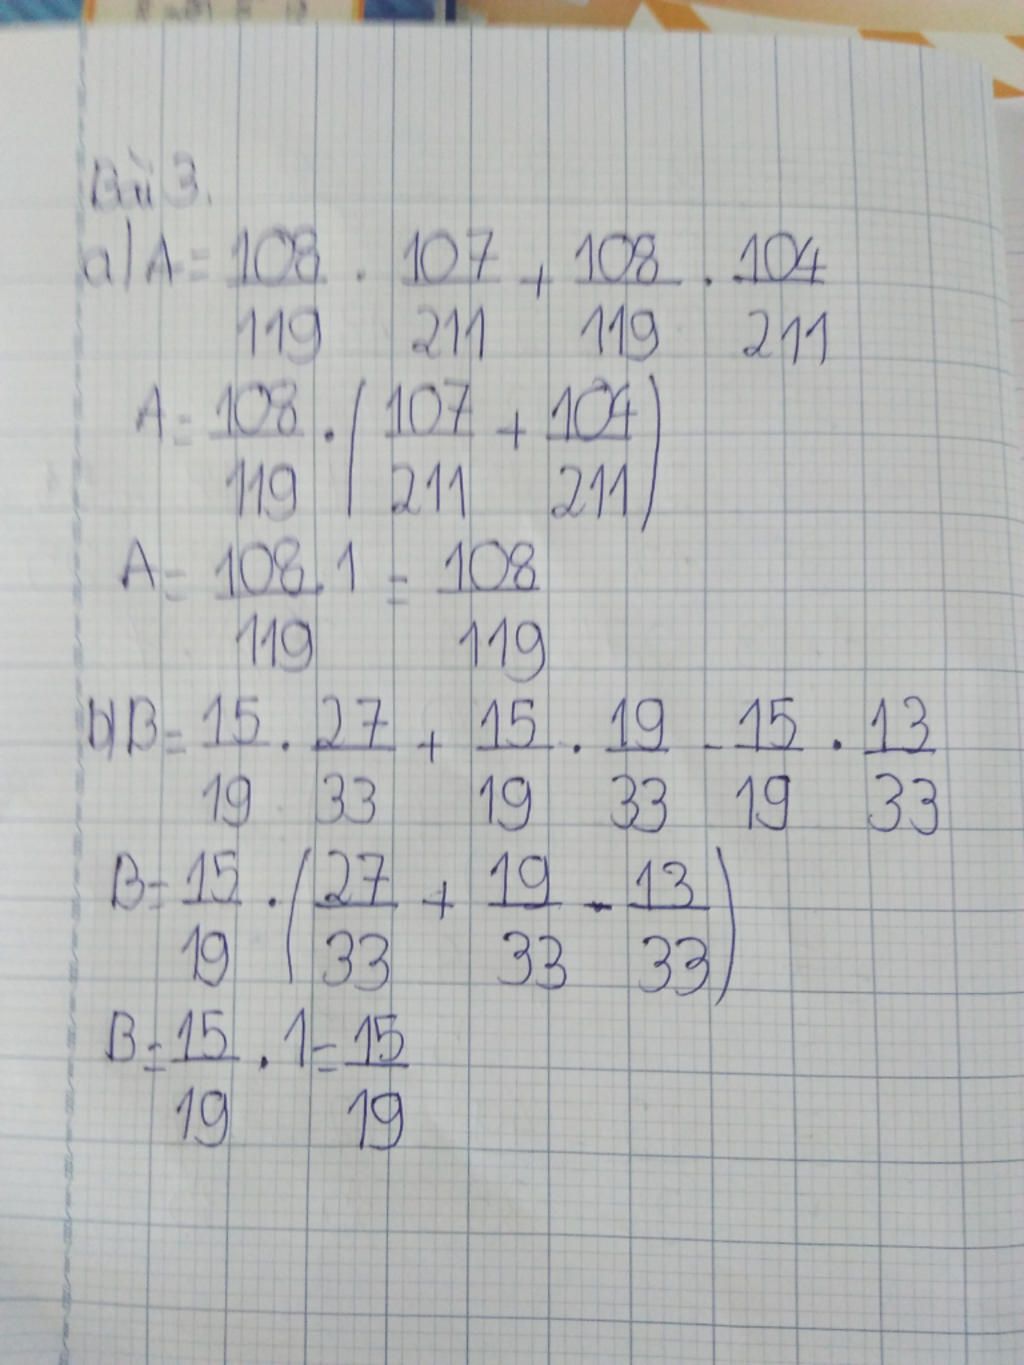 Bài 3.
a) A = 108/119 . 107/211 + 108/119 . 104/211
A = 108/119 . (107/211 + 104/211)
A = 108/119 . 1 = 108/119
b) B = 15/19 . 27/33 + 15/19 . 19/33 - 15/19 . 13/33
B = 15/19 . (27/33 + 19/33 - 13/33)
B = 15/19 . 1 = 15/19